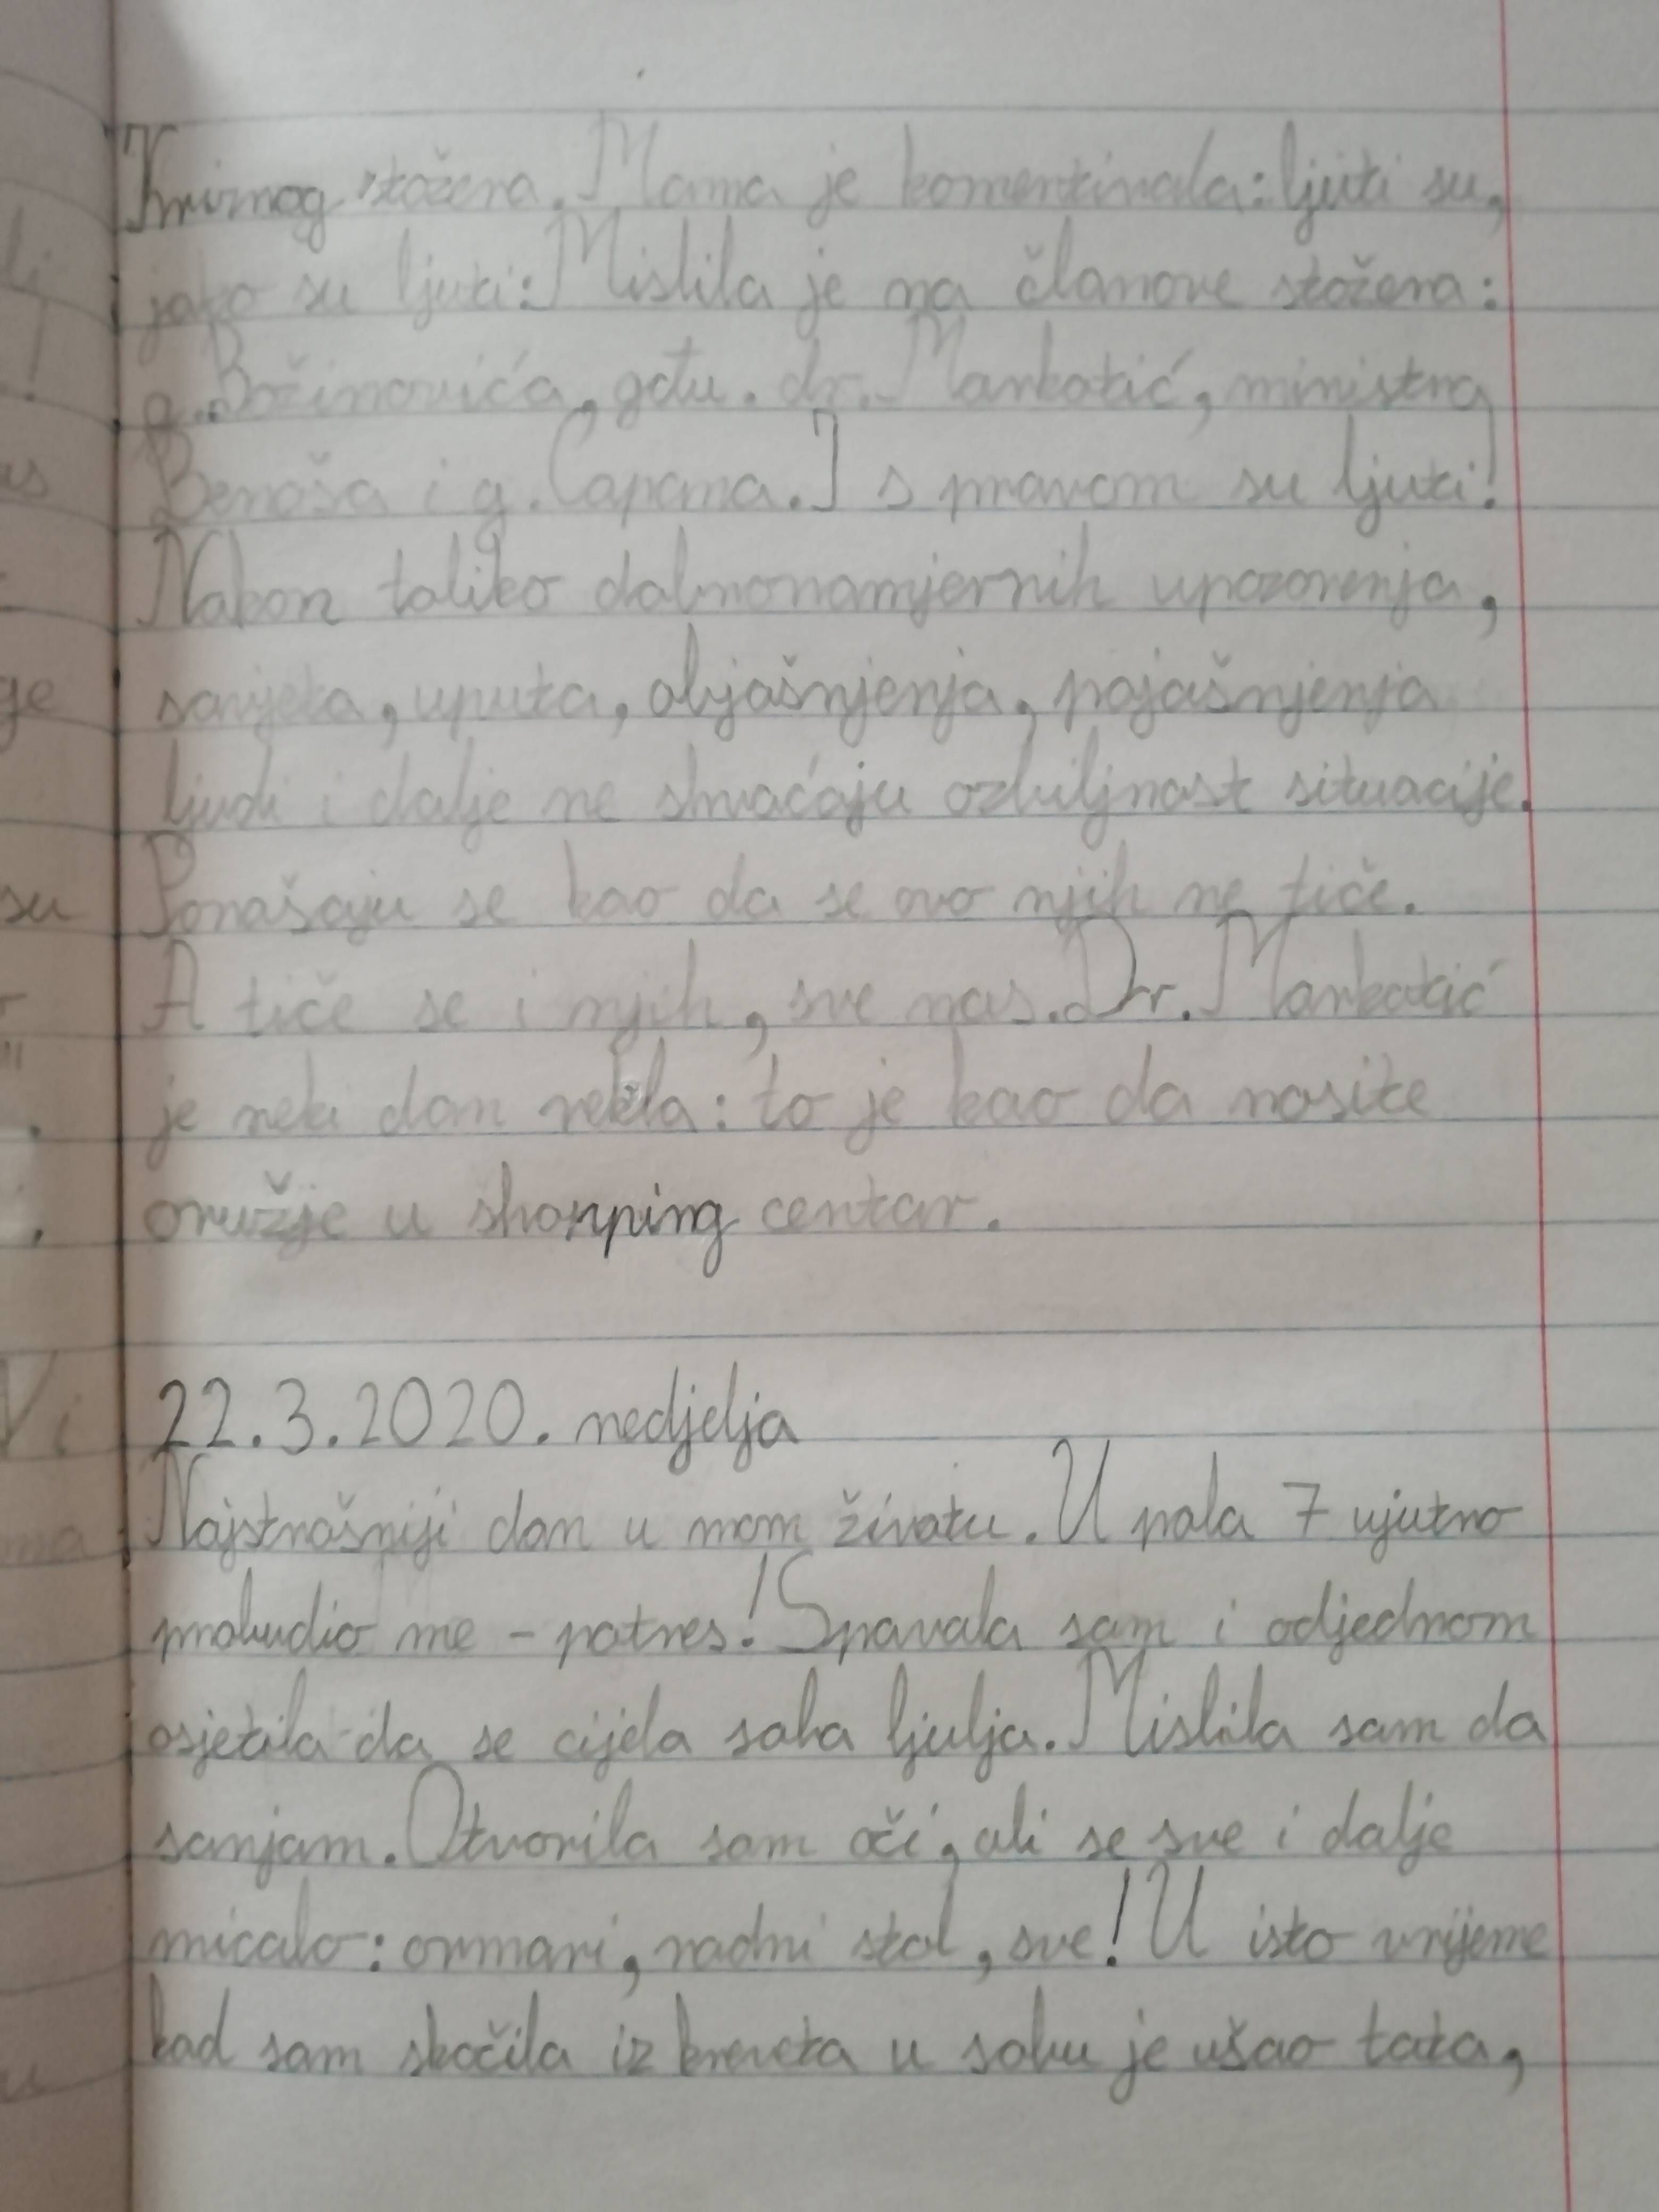 Kriznog stožera. Mama je komentirala: ljuti su,
jako su ljuti: Mislila je na članove stožera:
g. Božinovića, gđu. dr. Markotić, ministra
Beroša i g. Capama. I s pravom su ljuti!
Nakon toliko dobronamjernih upozorenja,
savjeta, uputa, objašnjenja, pojašnjenja
ljudi i dalje ne shvaćaju ozbiljnost situacije.
Ponašaju se kao da se ovo njih ne tiče.
A tiče se i njih, sve nas. Dr. Markotić
je neki dan rekla: to je kao da nosite
oružje u shopping centar.
22.3.2020. nedjelja
Najstrašniji dan u mom životu. U pola 7 ujutro
probudio me - potres! Spavala sam i odjednom
osjetila da se cijela soba ljulja. Mislila sam da
sanjam. Otvorila sam oči, ali se sve i dalje
micalo: ormari, radni stol, sve! U isto vrijeme
kad sam skočila iz kreveta u sobu je ušao tata,